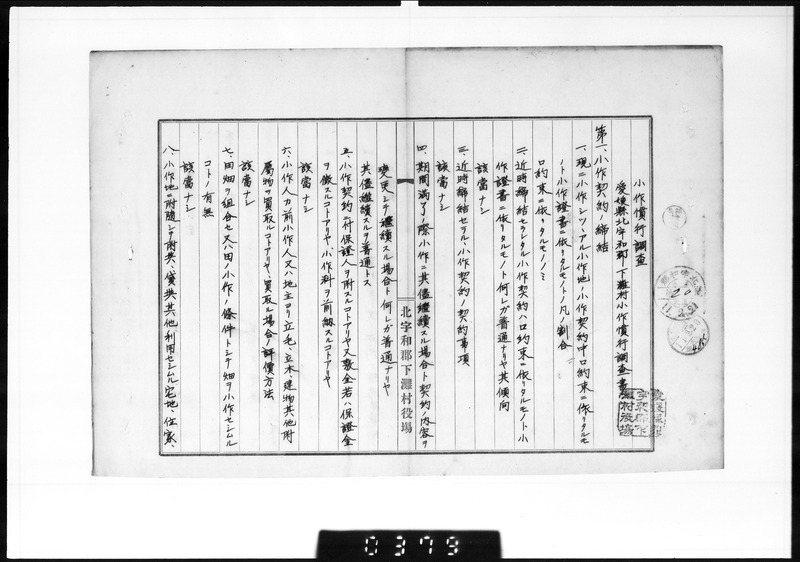 小作慣行調査
愛媛縣北宇和郡下灘村小作慣行調査書
第一、小作契約ノ締結
一、現ニ小作シツヽアル小作地ノ小作契約中口約束ニ依リタルモ
ノト小作證書ニ依リタルモノトノ凡ノ割合
口約束ニ依リタルモノノミ
二、近時締結セラレタル小作契約ハ口約束ニ依リタルモノト小
作證書ニ依リタルモノト何レガ普通ナリヤ其傾向
該當ナシ
三、近時締結セラル小作契約ノ契約事項
該當ナシ
四、期間滿了ノ際小作ニ其儘繼續スル場合ト契約ノ内容ヲ
變更シテ繼續スル場合ト何レガ普通ナリヤ
其儘繼續スルヲ普通トス
五、小作契約ニ付保證人ヲ附スルコトアリヤ又敷金若ハ保證金
ヲ徴スルコトアリヤ、小作料ヲ前納スルコトアリヤ
該當ナシ
六、小作人カ前小作人又ハ地主ヨリ立毛、立木、建物其他附
屬物ヲ買取ルコトアリヤ、買取ル場合ノ評價方法
該當ナシ
七、田畑ヲ組合セ又ハ田ノ小作ノ條件トシテ畑ヲ小作セシムル
コトノ有無
該當ナシ
八、小作地ニ附隨シテ附共、貸共其他利用セシムル宅地、住家、
北宇和郡下灘村役場
愛媛縣北
宇和郡下
灘村役場
0379